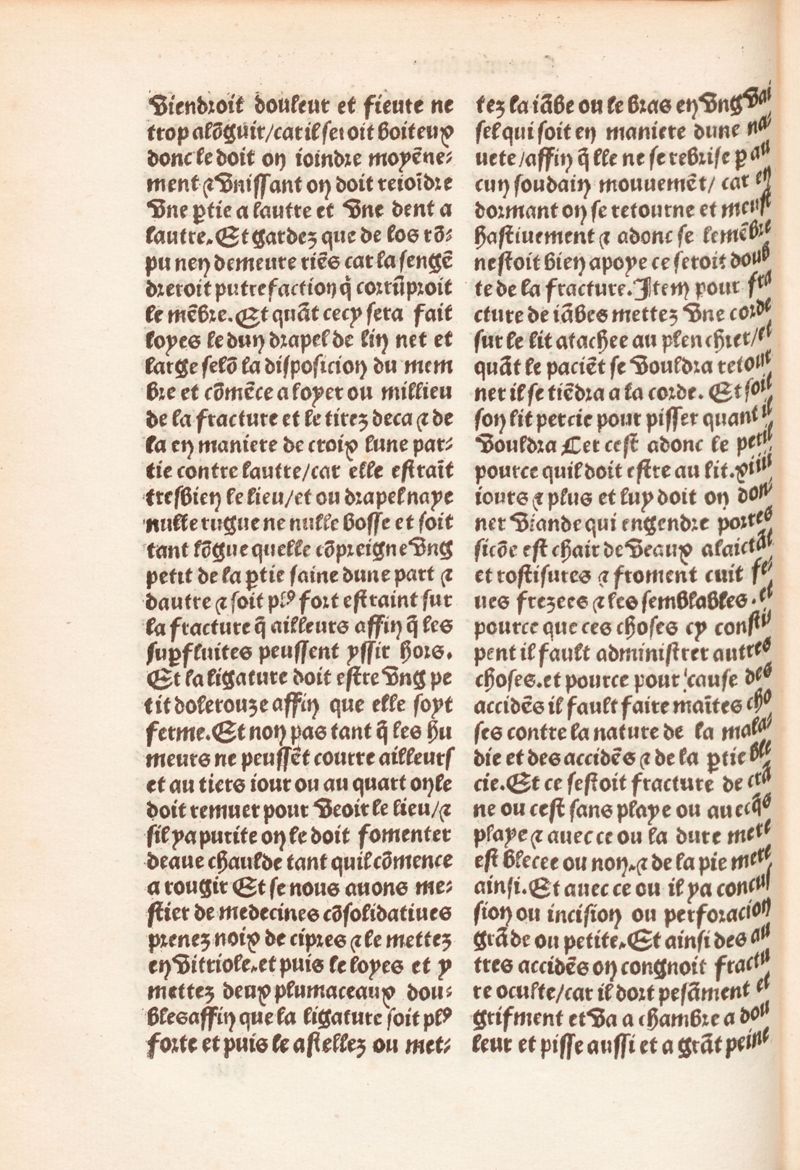 Viendroit douleur et fieute ne
trop alõguir/car il seroit boiteux
donc le doit on ioindre moyẽne-
ment ⁊ Vnissant on doit reioĩdre
Vne ꝑtie a lautre et Vne dent a
lautre. Et gardez que de los rõ-
pu neŋ demeure riẽs car la sengẽ
dreroit putrefaction q̃ corrũproit
le mẽbre. Et quãt cecy sera fait
loyes le duŋ drapel de liŋ net et
large selõ la disposicioŋ du mem
bre et cõmẽce a loyer ou millieu
de la fracture et le tirez deca ⁊ de
la eŋ maniere de croix lune par-
tie contre lautre/car elle estraĩt
tresbieŋ le lieu/et ou drapel naye
nulle rugue ne nulle bosse et soit
tant lõgue quelle cõpreigne Vng
petit de la ꝑtie saine dune part ⁊
dautre ⁊ soit plꝰ fort estraint sur
la fracture q̃ ailleurs affiŋ q̃ les
suꝑfluites peussent yssir hors.
Et la ligature doit estre Vng pe
tit dolerouze affiŋ que elle soyt
ferme. Et noŋ pas tant q̃ les hu
meurs ne peussẽt courre ailleurs
et au tiers iour ou au quart oŋ le
doit remuer pour Veoir le lieu/⁊
sil ya purite oŋ le doit fomenter
deaue chaulde tant quil cõmence
a rougir Et se nous auons me-
stier de medecines cõsolidatiues
prenez noix de cipres ⁊ le mettez
eŋ Vitriole. et puis le loyes et y
mettez deux plumaceaux dou-
bles affiŋ que la ligature soit plꝰ
forte et puis le astellez ou met-
tez la iãbe ou le bras eŋ Vng Vai
sel qui soit eŋ maniere dune na
uete/affiŋ q̃lle ne se rebrise ꝑ au
cuŋ soudaiŋ mouuemẽt/ car eŋ
dormant oŋ se retourne et meust
hastiuement ⁊ adonc se le mẽbre
nestoit bieŋ apoye ce seroit doub
te de la fracture. Item pour fra
cture de iãbes mettez Vne corde
sur le lit atachee au plenchier/et
quãt le paciẽt se Vouldra retour
ner il se tiẽdra a la corde. Et soit
soŋ lit percie pour pisser quant il
Vouldra Cer cest adonc le petil
pource quil doit estre au lit. xiiii
iours ⁊ plus et luy doit oŋ don
ner Viande qui engendre portes
sicõe est chair de Veaux alaictãs
et rostisures ⁊ froment cuit fe
ues frezees ⁊ les semblables. et
pource que ces choses cy consti
pent il fault administrer autres
choses. et pource pour cause des
accidẽs il fault faire maĩtes cho
ses contre la nature de la mala
die et des accidẽs ⁊ de la ꝑtie ble
cie. Et ce sestoit fracture de crã
ne ou cest sans playe ou auecq̃s
playe ⁊ auec ce ou la dure mere
est blecee ou noŋ. ⁊ de la pie mere
ainsi. Et auec ce ou il ya concus
sioŋ ou incisioŋ ou perforacioŋ
grãde ou petite. Et ainsi des au
tres accidẽs oŋ congnoit fractu
re oculte/car il dort pesãment et
grifment et Va a chambre a dou
leur et pisse aussi et a grãt peine